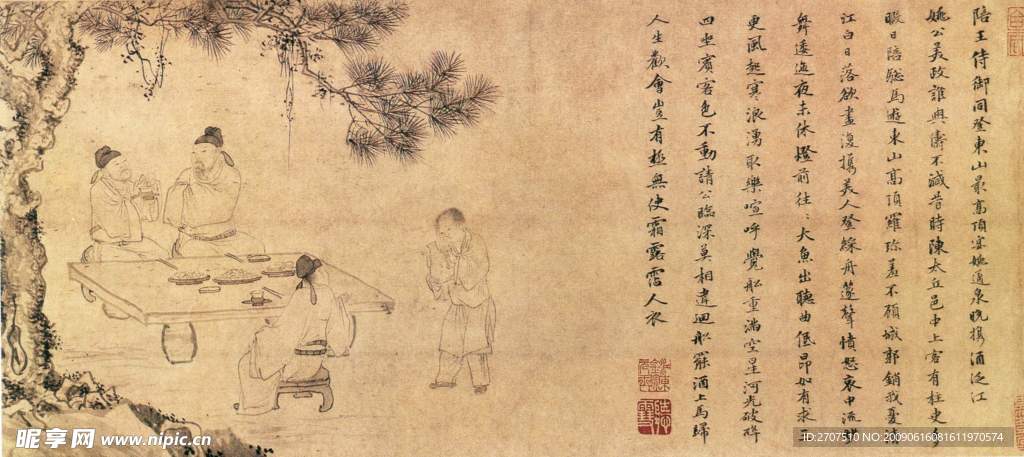 陪王侍御同登東山最高頂宴姚通泉晚携酒泛江
姚公美政誰與儔不減昔時陳太丘邑中上客有柱史多
暇日陪驄馬遊東山高頂羅珍羞下顧城郭銷我憂清
江白日落欲盡復携美人登綵舟篴聲憤怨哀中流妙
舞逶迤夜未休燈前往〻大魚出聽曲低昂如有求三
更風起寒浪湧取樂喧呼覺船重滿空星河光破碎
四坐賓客色不動請公臨深莫相違迴船罷酒上馬歸
人生歡會豈有極無使霜露霑人衣
昵享网 www.nipic.cn
ID:2707510 NO:20090616081611970574